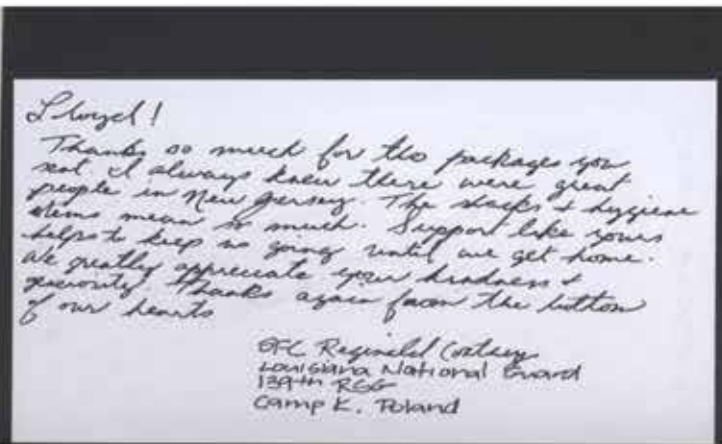 Lloyd!
Thanks so much for the packages you
sent. I always knew there were great
people in New Jersey. The snacks & hygiene
items mean so much. Support like yours
helps to keep us going until we get home.
We greatly appreciate your kindness &
generosity. Thanks again from the bottom
of our hearts
SFC Reginald
Louisiana National Guard
139th RSG
Camp K. Poland